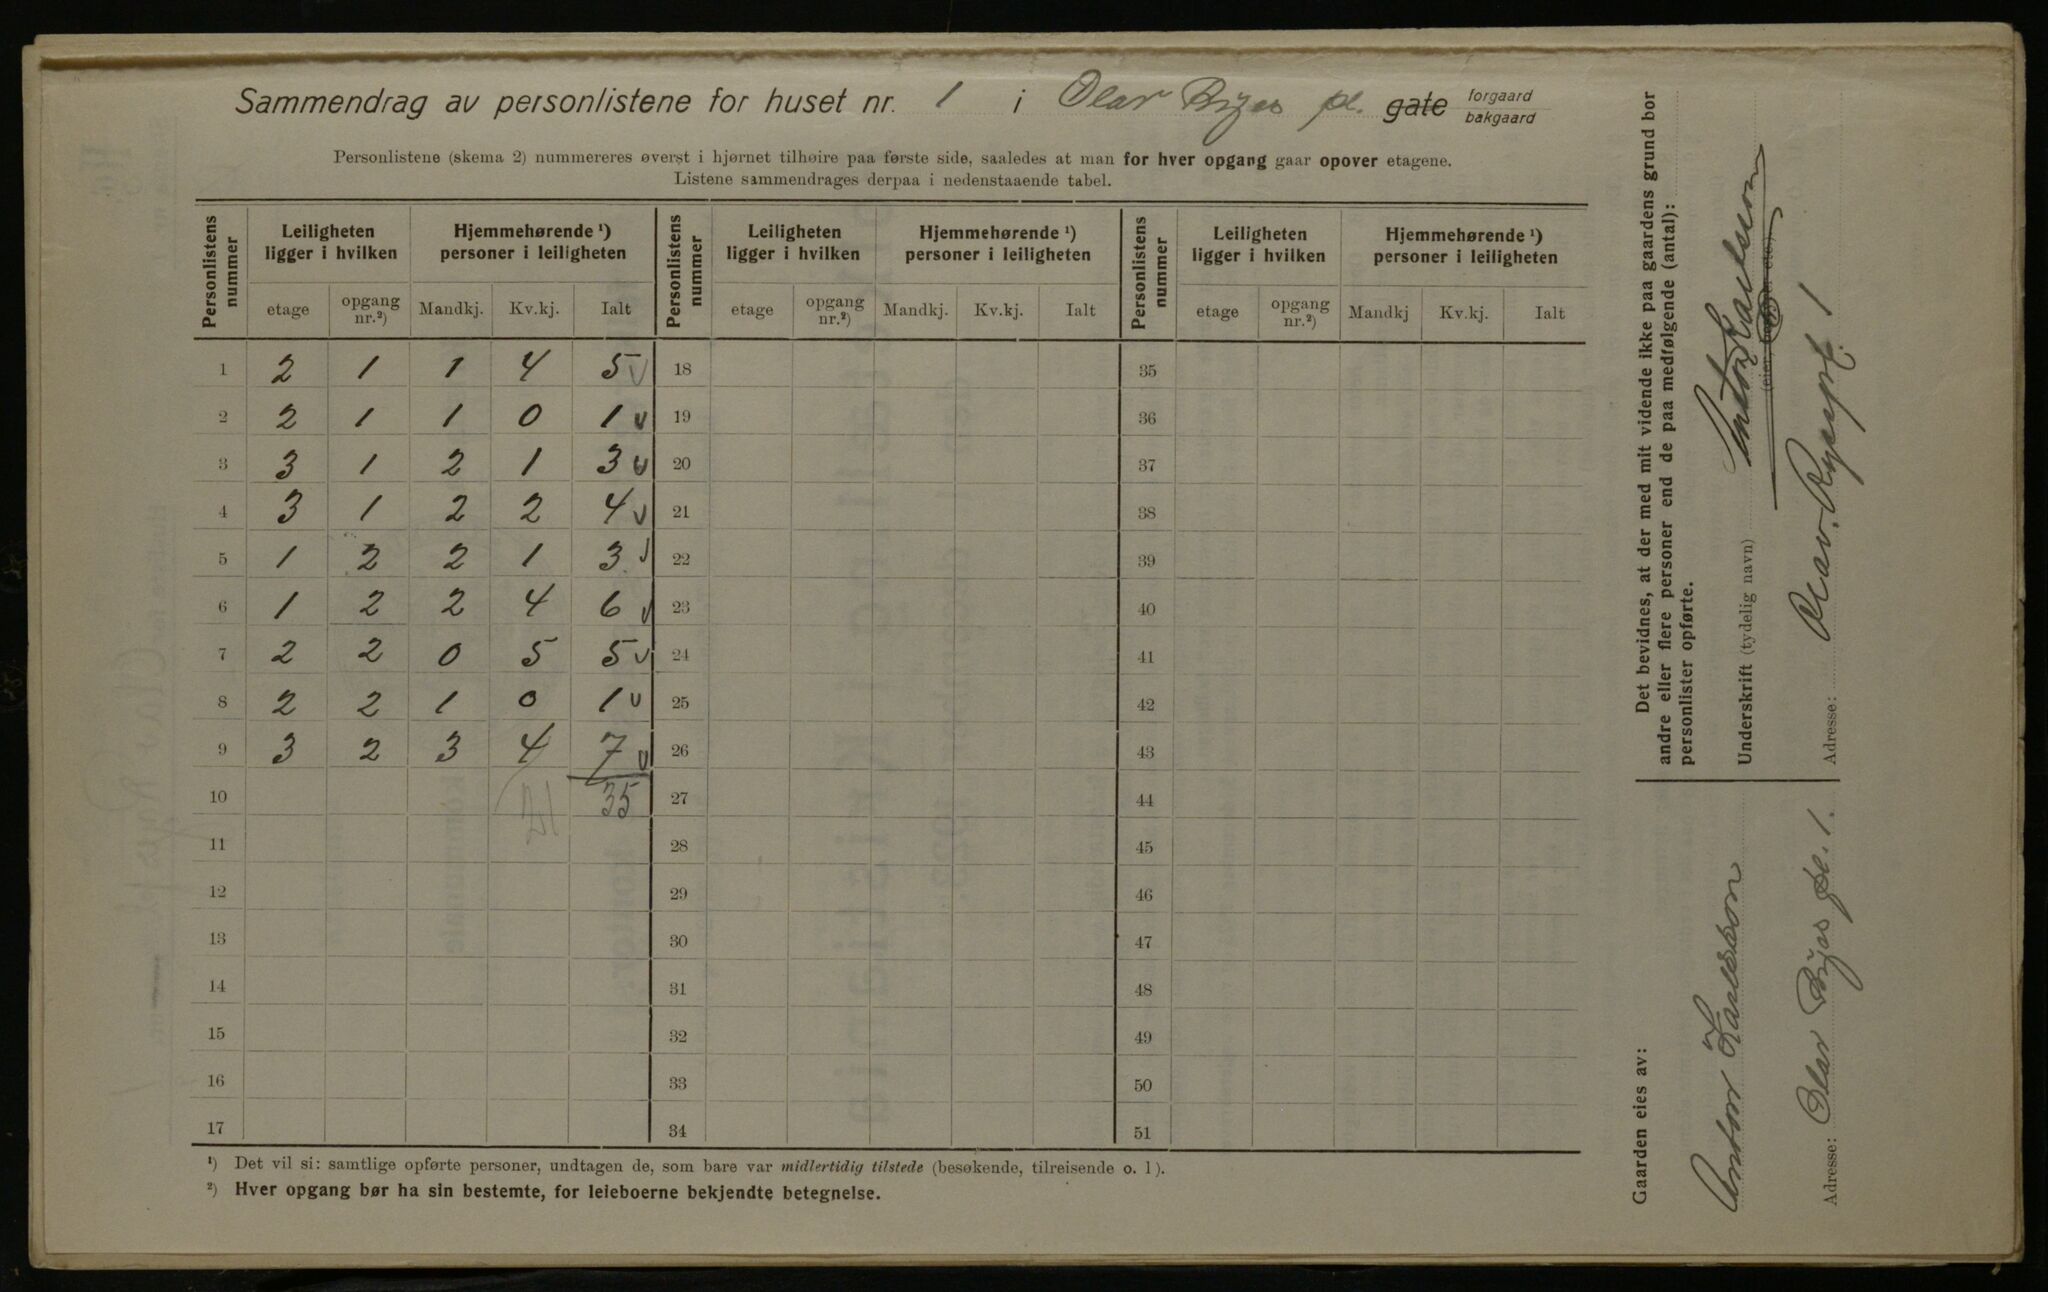 Sammendrag av personlistene for huset nr. 1 i Olav Ryes pl. gate forgaard bakgaard
Personlistene (skema 2) nummereres øverst i hjørnet tilhøire paa første side, saaledes at man for hver opgang gaar opover etagene.
Listene sammendrages derpaa i nedenstaaende tabel.
Personlistens nummer Leiligheten ligger i hvilken Hjemmehørende ¹) personer i leiligheten Personlistens nummer Leiligheten ligger i hvilken Hjemmehørende ¹) personer i leiligheten Personlistens nummer Leiligheten ligger i hvilken Hjemmehørende ¹) personer i leiligheten
etage opgang nr.²) Mandkj. Kv.kj. Ialt etage opgang nr.²) Mandkj. Kv.kj. Ialt etage opgang nr.²) Mandkj Kv.kj. Ialt
1 2 1 1 4 5 18 35
2 2 1 1 0 1 19 36
3 3 1 2 1 3 20 37
4 3 1 2 2 4 21 38
5 1 2 2 1 3 22 39
6 1 2 2 4 6 23 40
7 2 2 0 5 5 24 41
8 2 2 1 0 1 25 42
9 3 2 3 4 7 26 43
10 35 27 44
11 28 45
12 29 46
13 30 47
14 31 48
15 32 49
16 33 50
17 34 51
¹) Det vil si: samtlige opførte personer, undtagen de, som bare var midlertidig tilstede (besøkende, tilreisende o. l).
²) Hver opgang bør ha sin bestemte, for leieboerne bekjendte betegnelse.
Det bevidnes, at der med mit vidende ikke paa gaardens grund bor
andre eller flere personer end de paa medfølgende (antal):
personlister opførte.
Underskrift (tydelig navn) Anton Karlsson
Adresse: Olav Ryespl. 1
Gaarden eies av:
Anton Karlsson
Adresse: Olav Ryes pl. 1.